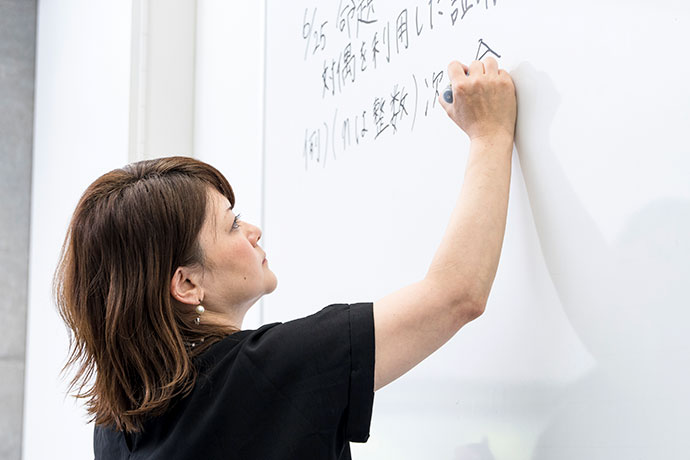 6/25 命題
対偶を利用した証明
例)(nは整数)次